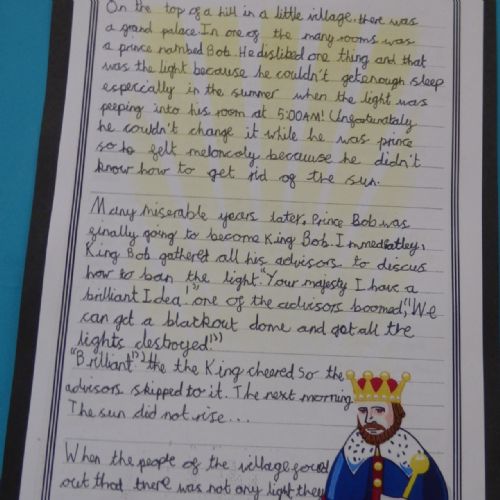 On the top of a hill in a little village. there was
a grand palace. In one of the many rooms was
a prince nambed Bob. He disliked one thing and that
was the light because he couldn't get enough sleep
especially in the summer when the light was
peeping into his room at 5:00AM! Unfortunataly
he couldn't change it while he was prince
so he felt meloncoly because he didn't
know how to get rid of the sun.
Many miserable years later, Prince Bob was
finally going to become King Bob. Immediatley,
King Bob gathered all his advisors to discus
how to ban the light. "Your majesty I have a
brilliant Idea!" one of the advisors boomed, "We
can get a blackout dome and get all the
lights destroyed!"
"Brilliant" the the King cheered so the
advisors skipped to it. The next morning
The sun did not rise...
When the people of the village found
out that there was not any light they